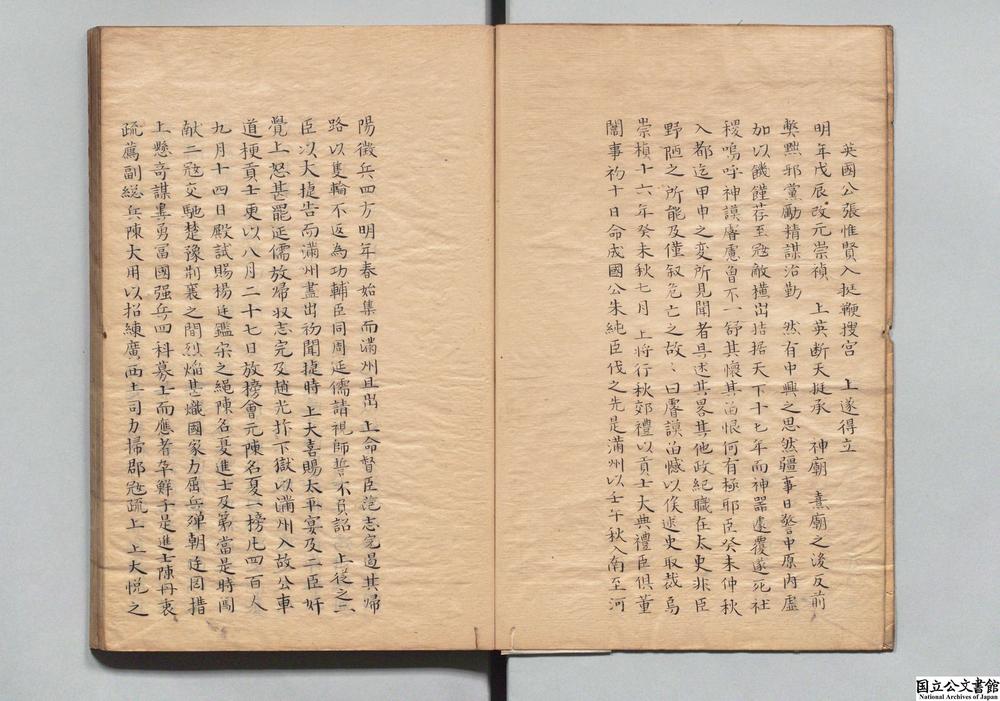 英國公張惟賢入挺鞭搜宮　上遂得立
明年戊辰改元崇禎　上英断天挺承　神廟　熹廟之後反前
獘黜邪黨勵精謀治勤　然有中興之思然疆事日警中原內虛
加以饑饉荐至寇敵横出拮据天下十七年而神器遽覆遂死社
稷嗚呼神謨睿慮曾不一舒其懷其畱恨何有極耶臣癸未仲秋
入都迄甲申之变所見聞者具述其畧其他政紀職在太史非臣
野陋之所能及僅叙危亡之故〻曰睿謨畱憾以俟逑史取裁焉
崇禎十六年癸未秋七月　上将行秋郊禮以貢士大典禮臣俱董
闈事初十日命成國公朱純臣伐之先是滿州以壬午秋入南至河
陽徵兵四方明年春始集而滿州且出　上命督臣范志完遏其帰
路以隻輪不返為功輔臣同周延儒請視師誓不負詔　上從之二
臣以大捷告而滿州盡出初聞捷時　上大喜賜太平宴及二臣奸
覺上怒甚罷延儒放帰収志完及趙光抃下獄以滿州入故公車
道梗貢士更以八月二十七日放榜會元陳名夏一榜凡四百人
九月十四日殿試賜楊廷鑑宋之繩陳名夏進士及第當是時闖
献二寇交馳楚豫荆襄之間烈焰甚熾國家力屈兵殫朝廷罔措
上懸奇謀異勇冨國强兵四科募士而應者卒鮮于是進士陳丹衷
疏薦副総兵陳大用以招練廣西土司力掃郡寇疏上　上大悦之
国立公文書館
National Archives of Japan